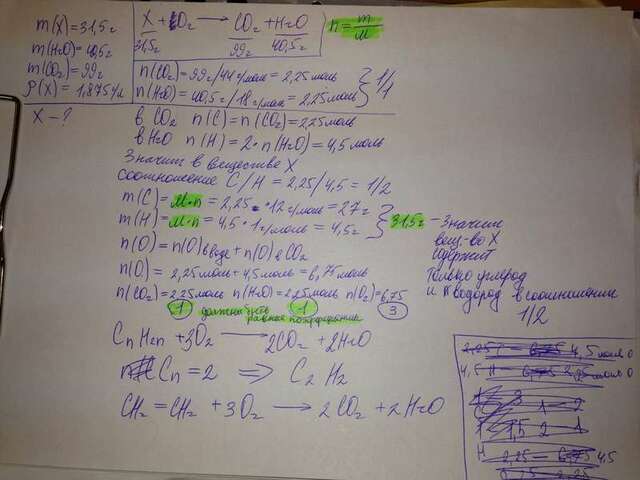 m(X)=31,5г
m(H₂O)=40,5г
m(CO₂)=99г
ρ(X)=1,875г/л
X-?
X + O₂ → CO₂ + H₂O
31,5г 99г 40,5г
n = m/M
n(CO₂)=99г/44г/моль = 2,25моль
n(H₂O)=40,5г/18г/моль = 2,25моль
1/1
в CO₂ n(C)=n(CO₂)=2,25моль
в H₂O n(H)=2·n(H₂O)=4,5 моль
Значит в веществе X
соотношение C/H = 2,25/4,5 = 1/2
m(C)= M·n = 2,25 · 12г/моль = 27г
m(H)= M·n = 4,5 · 1г/моль = 4,5г
31,5г - Значит
вещ-во X
содержит
только углерод
и водород в соотношении
1/2
n(O)= n(O)в воде + n(O)в CO₂
n(O)= 2,25моль + 4,5моль = 6,75моль
n(CO₂)=2,25моль n(H₂O)=2,25моль n(O₂)=6,75
1 должны быть 1 3
равные
CnH2n + 3O₂ → 2CO₂ + 2H₂O
Cn=2 ⇒ C₂H₂
CH₂=CH₂ + 3O₂ → 2CO₂ + 2H₂O
4,5 моль O
4,5